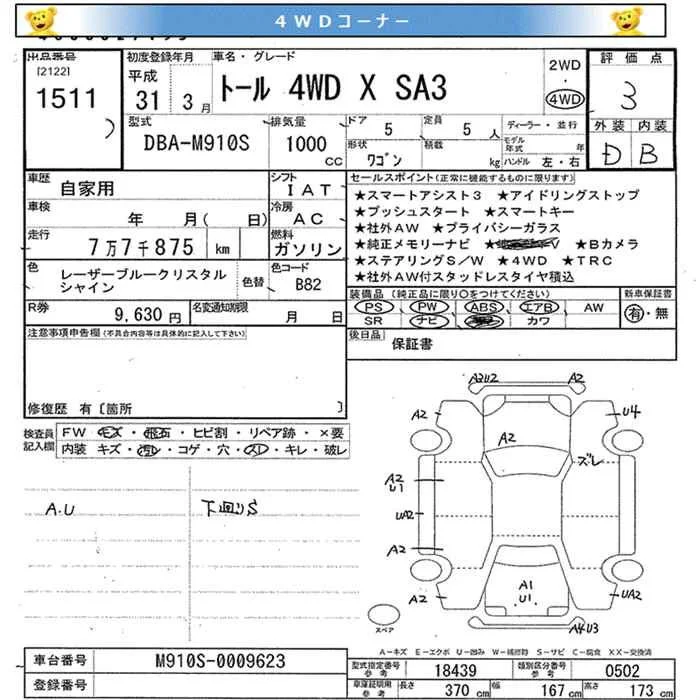 4WDコーナー
出品番号
[2122]
1511
初度登録年月
平成
31 3月
車名・グレード
トール 4WD X SA3
2WD
・
4WD
評価点
3
外装 内装
D B
型式
DBA-M910S
排気量
1000
CC
ドア 5
定員 5 人
形状 ワゴン
積載 kg
ディーラー・並行
モデル年式 年
ハンドル 左・右
車歴
自家用
シフト
IAT
車検
年 月( 日)
冷房
AC
走行
7万7千875 km
燃料
ガソリン
色
レーザーブルークリスタル
シャイン
色替
色コード
B82
R券
9,630 円
名変通知期限
月 日
セールスポイント(正常に機能するものに限ります)
★スマートアシスト3 ★アイドリングストップ
★プッシュスタート ★スマートキー
★社外AW ★プライバシーガラス
★純正メモリーナビ ★Bカメラ
★ステアリングS/W ★4WD ★TRC
★社外AW付スタッドレスタイヤ積込
装備品(純正品に限り○をつけてください)
PS PW ABS エアB AW
SR ナビ カワ
新車保証書
有・無
後日品
保証書
注意事項申告欄(不具合内容等は具体的に記入して下さい)
修復歴 有〔箇所 〕
検査員
記入欄
FW キズ・飛石・ヒビ割・リペア跡・×要
内装 キズ・汚レ・コゲ・穴・スレ・キレ・破レ
A.U
下回りS
A3U2
A2
A2
U4
A2
ズレ
A2
U1
UA2
A2
A2
A1
U1
UA2
A4U3
スペア
A-キズ E-エクボ U-凹み W-補修跡 S-サビ C-腐食 XX-交換済
車台番号
M910S-0009623
登録番号
型式指定番号
参考
18439
類別区分番号
参考
0502
車庫証明用
参考
長さ 370 cm
幅 167 cm
高さ 173 cm